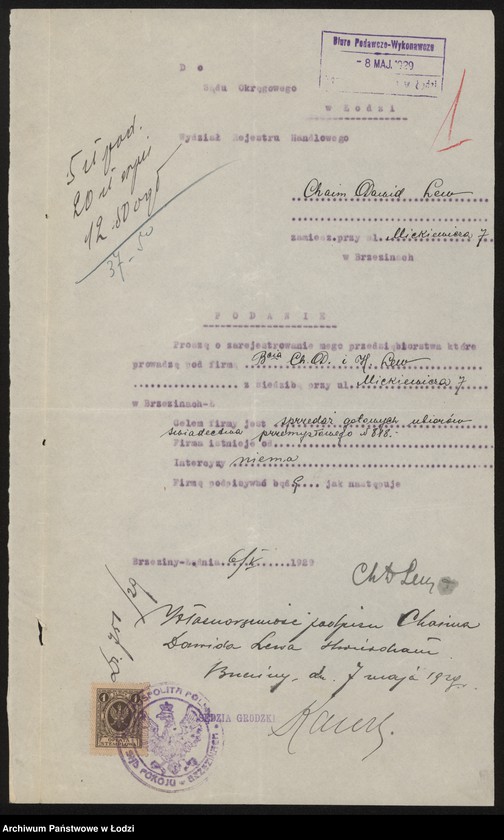 Biuro Podawcze-Wykonawcze
- 8 MAJ. 1929
1
D o
Sądu Okręgowego
w Łodzi
Wydział Rejestru Handlowego
5 zł pod.
20 zł
12.50
37-50
Chaim Dawid Lew
zamiesz.przy ul. Mickiewicza 7
w Brzezinach
P O D A N I E
Proszę o zarejestrowanie mego przedsiębiorstwa które
prowadzę pod firmą Bcia Ch.D. i H. Lew
z siedzibą przy ul. Mickiewicza 7
w Brzezinach-Ł
Celem firmy jest sprzedaż gotowych ubiorów
świadectwa przemysłowego N
Firma istnieje od
Intercyzy niema
Firmę podpisywać będę jak następuje
Brzeziny-Łódzkie 6/V 1929
Ch D Lew
Własnoręczność podpisu Chaima
Dawida Lewa stwierdzam
Brzeziny, dn. 7 maja 1929.
SĘDZIA GRODZKI
SĄD POKOJU BRZEZINACH
1
Archiwum Państwowe w Łodzi